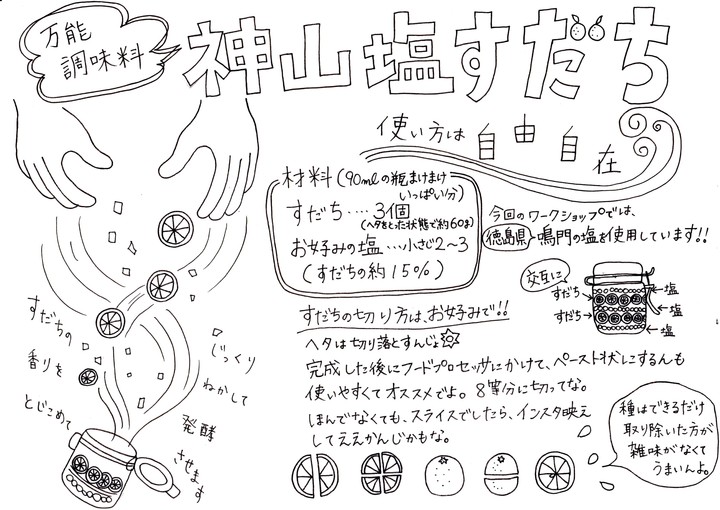 万能
調味料
神山塩すだち
使い方は自由自在
材料(90mlの瓶まけまけ
いっぱい分)
すだち…3個
(ヘタをとった状態で約60g)
お好みの塩…小さじ2~3
(すだちの約15%)
今回のワークショップでは、
徳島県鳴門の塩を使用しています!!
交互に
すだち
すだち
塩
塩
塩
すだちの切り方は、お好みで!!
ヘタは切り落とすんじょ
完成した後にフードプロセッサにかけて、ペースト状にするんも
使いやすくてオススメでよ。8等分に切ってな。
ほんでなくても、スライスでしたら、インスタ映え
してええかんじかもな。
種はできるだけ
取り除いた方が
雑味がなくて
うまいんよ。
すだちの
香りを
とじこめて
じっくり
ねかして
発酵
させます